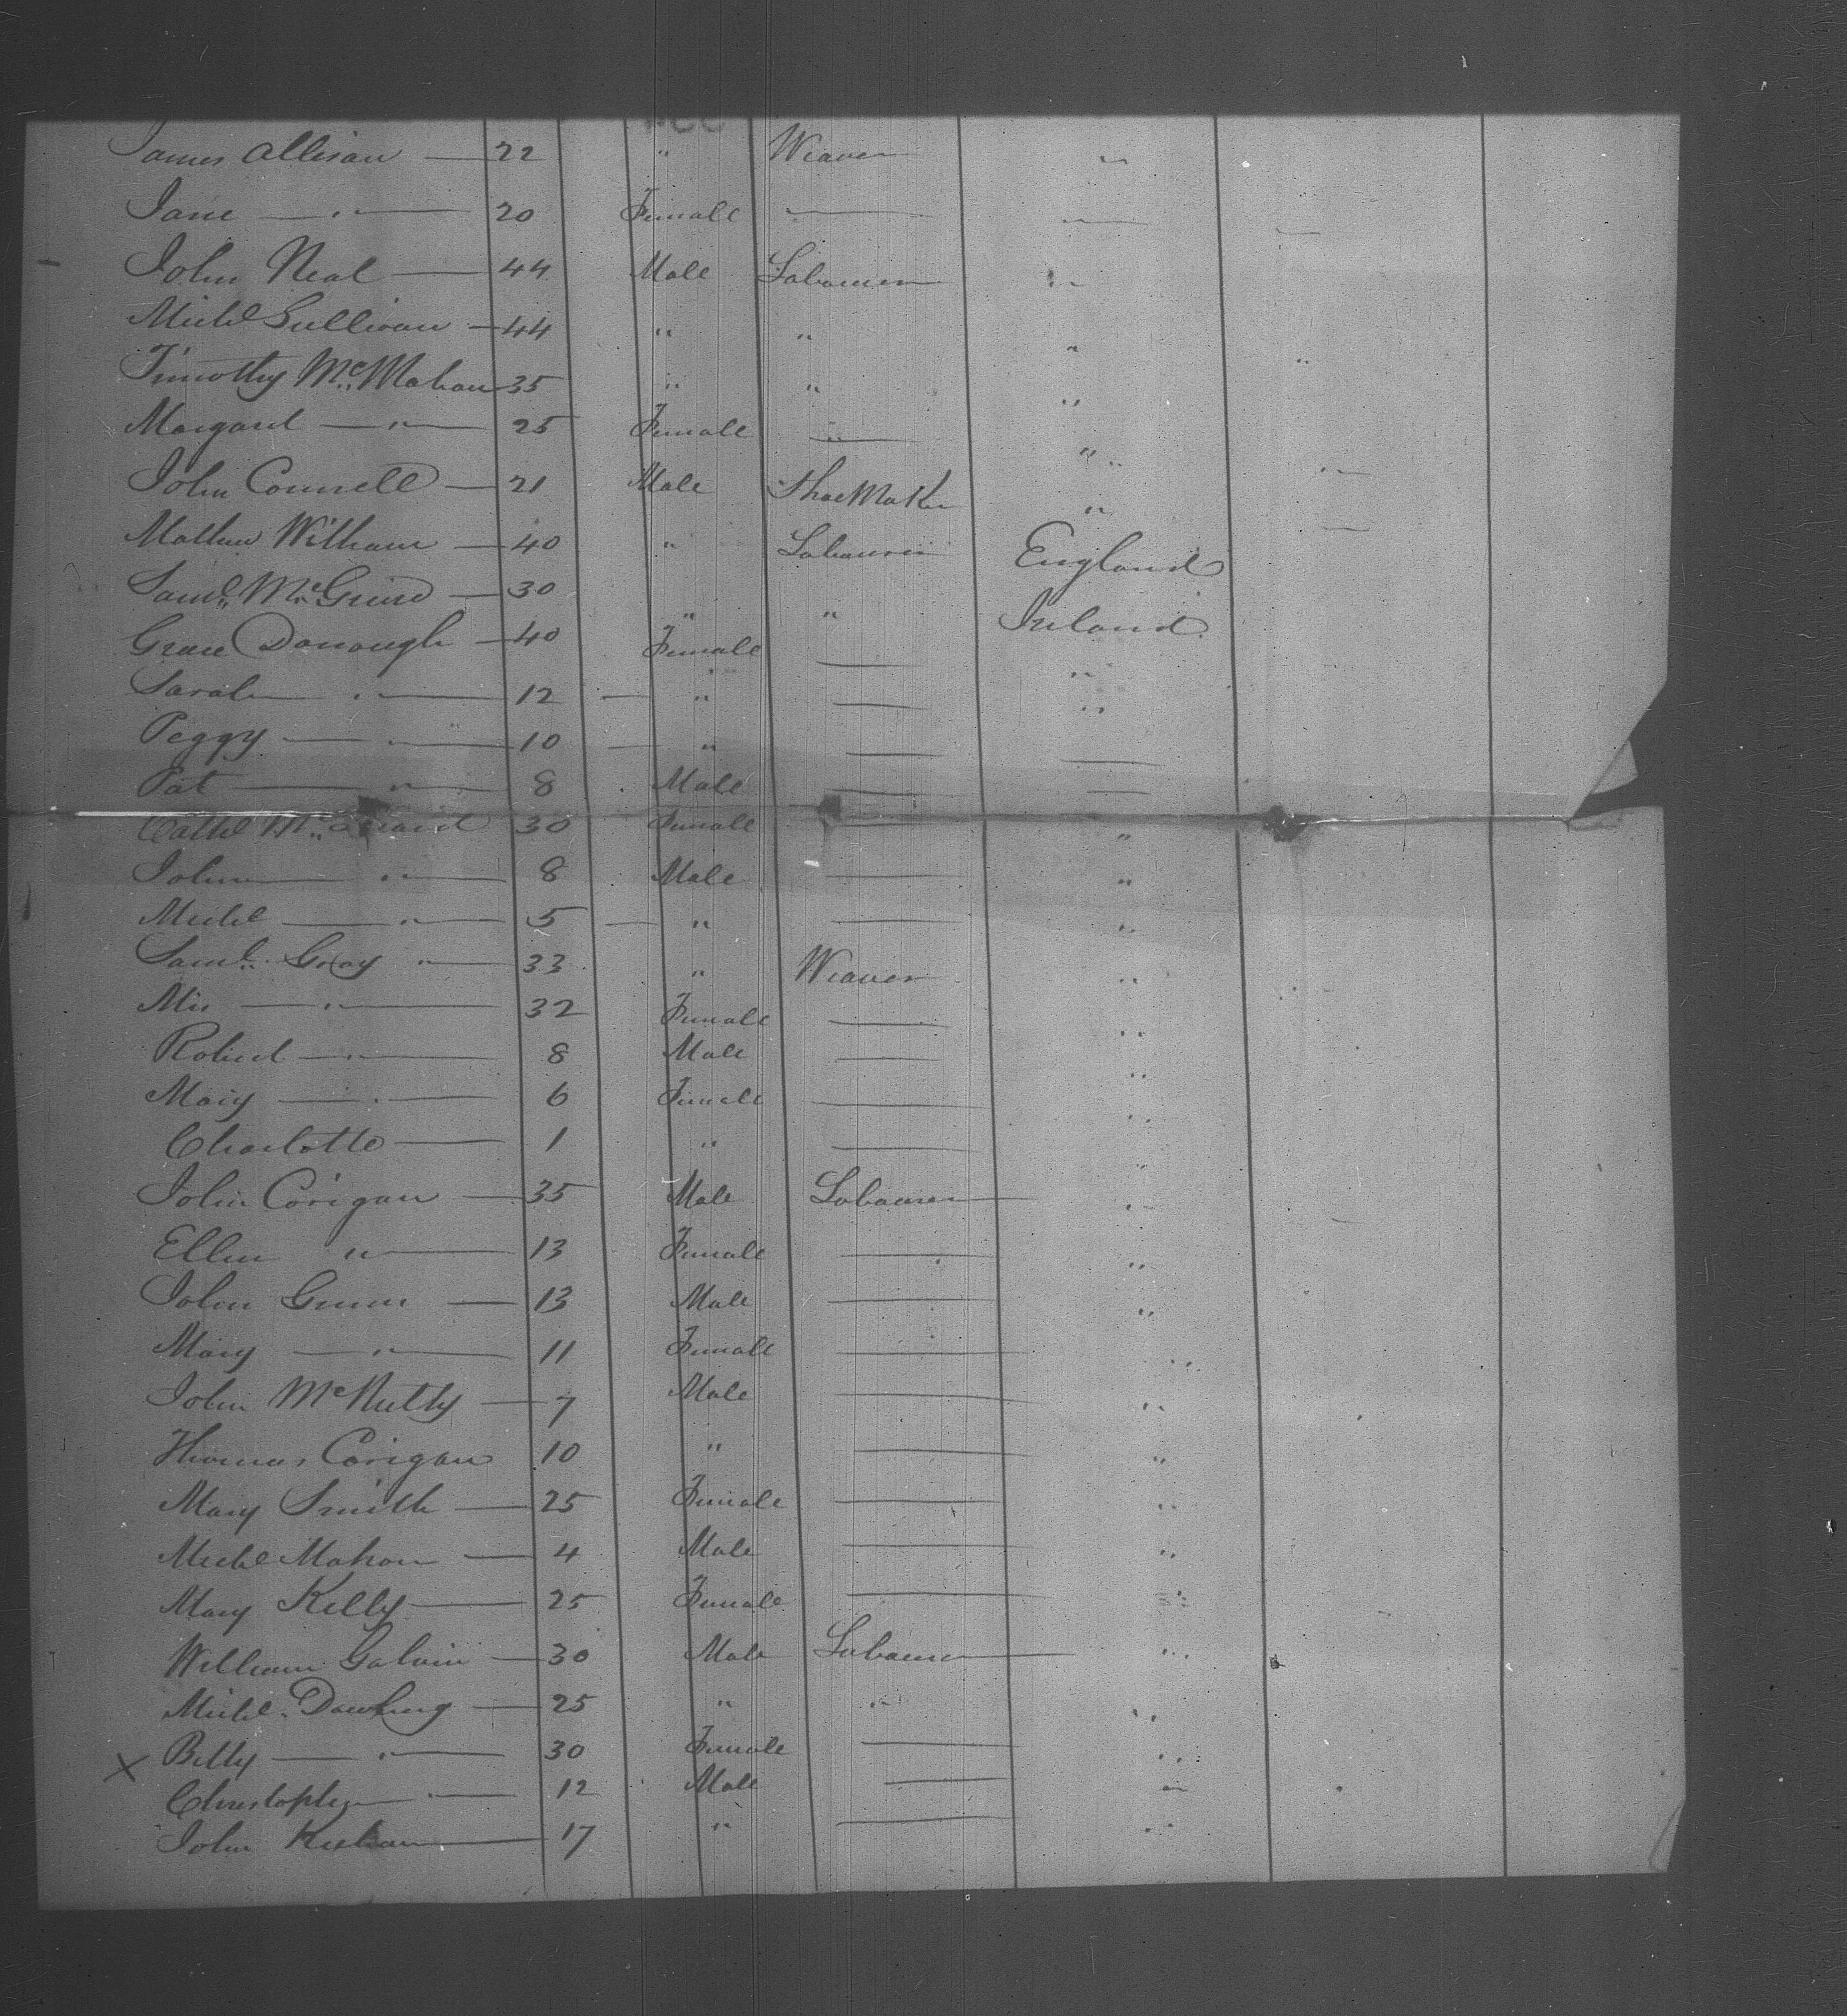 James Allison — 22 " Weaver "
Jane — " — 20 Female — "
John Neal — 44 Male Labourer "
Michl Sullivan — 44 " " "
Timothy McMahan 35 " " "
Margaret — " — 25 Female — "
John Connell — 21 Male Shoe Maker "
Mathew William — 40 " Labourer England
Saml 30 " " Ireland
Grace Donough — 40 Female — "
Sarah — " — 12 — " — "
Peggy — " — 10 — " — —
Pat — " — 8 Male — —
30 Female — "
John — " — 8 Male — "
Michl — " — 5 — " — "
Saml Gray " — 33 " Weaver "
Mrs — " — 32 Female — "
Robert — " — 8 Male — "
Mary — " — 6 Female — "
Charlotte — 1 " — "
John Corigan — 35 Male Labourer "
Ellen " — 13 Female — "
John Gunn — 13 Male — "
Mary — " — 11 Female — "
John McNulty — 7 Male — "
Thomas Corigan 10 " — "
Mary Smith — 25 Female — "
Michl Mahon — 4 Male — "
Mary Kelly — 25 Female — "
William Galvin — 30 Male Labourer "
Michl Dowling — 25 " " "
X Betty — " — 30 Female — "
Christopher " — 12 Male — "
John — 17 " — "